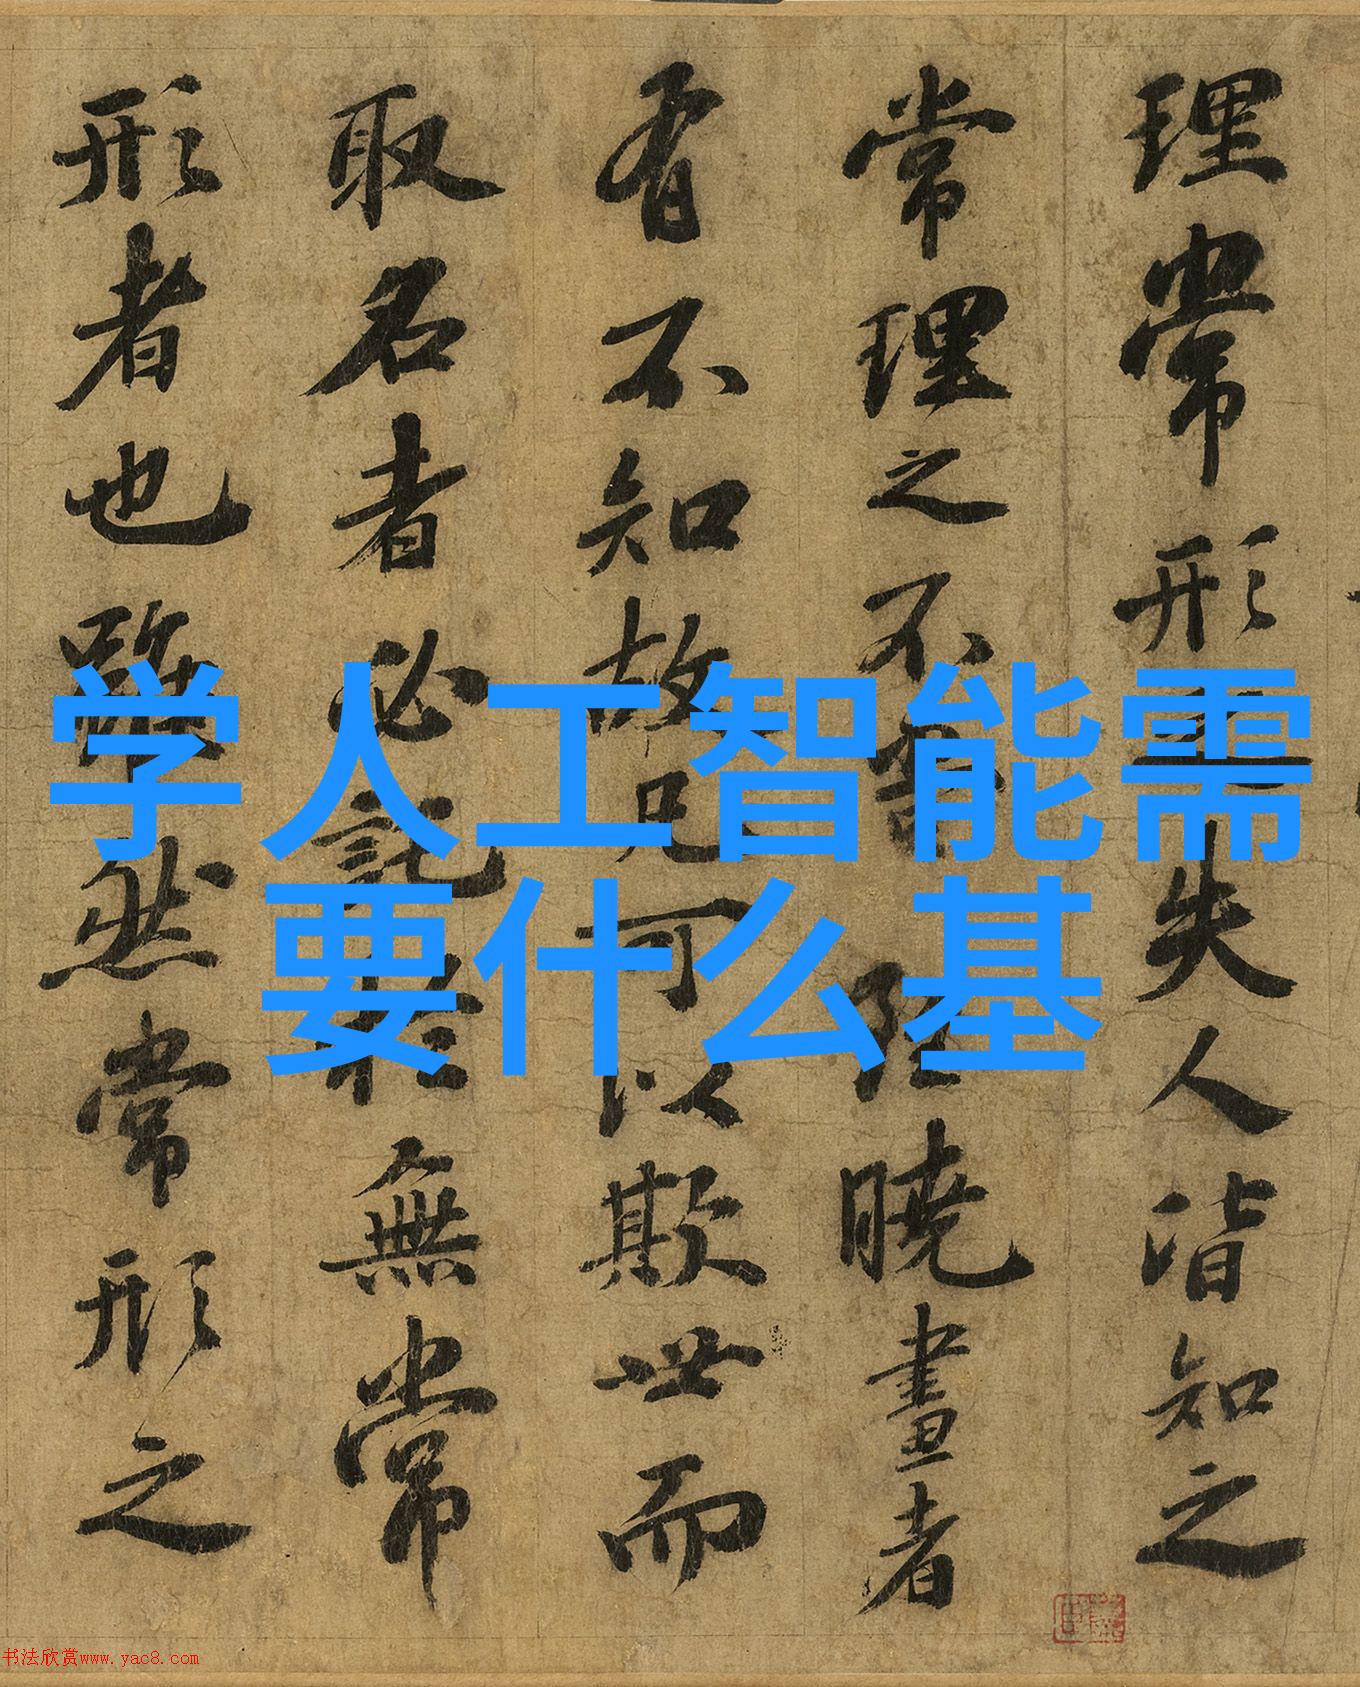 理常形之失人皆知之
常理之不當雖曉畫者
有不知故凡可以欺世而
取名者必託於無常
形者也雖然常形之
学人工智能需
要什么基
书法欣赏www.yac8.com